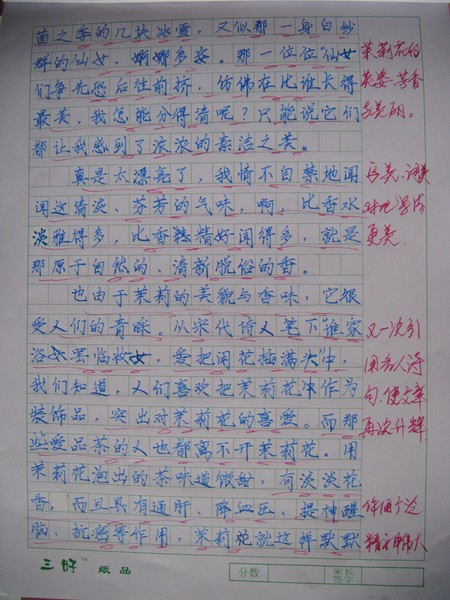 茵之季的几块冰雪，又似那一身白纱
群的仙女，婀娜多姿。那一位位“仙女
们争先恐后往前挤，仿佛在比谁长得
最美，我怎能分得清呢？只能说它们
都让我感到了浓浓的素洁之美。
真是太漂亮了，我情不自禁地闻
闻这清淡、芬芳的气味，啊，比香水
淡雅得多，比香精好闻得多，就是
那原于自然的、清新脱俗的香。
也由于茉莉的美貌与香味，它很
受人们的青睐。从宋代诗人笔下“谁家
浴罢临妆女，爱把闲花插满头”中，
我们知道，人们喜欢把茉莉花串作为
装饰品，突出对茉莉花的喜爱。而那
些爱品茶的人也都离不开茉莉花。用
茉莉花泡出的茶味道微甜，有淡淡花
香，而且具有通肝、降血压、提神醒
脑、抗癌等作用，茉莉花就这样默默
茉莉花的
美姿、芳香
更美
又一次引
用名人诗
句，使文章
再次升辉
作用广泛
精神伟大
三好™纸品
分数
家长签字